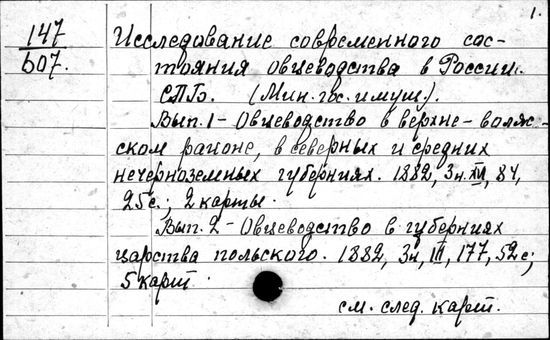 1.
147
607.
Исследование современного сос-
тояния овцеводства в России.
СПБ. (Мин. гос. имущ.).
Вып. 1 - Овцеводство в верхне-волж-
ском районе, в северных и средних
нечерноземных губерниях. 1882, 3н. XII, 84,
25с.; 2 карты.
Вып. 2 - Овцеводство в губерниях
царства польского. 1882, 3н, III, 177, 52с;
5 карт.
см. след. карт.